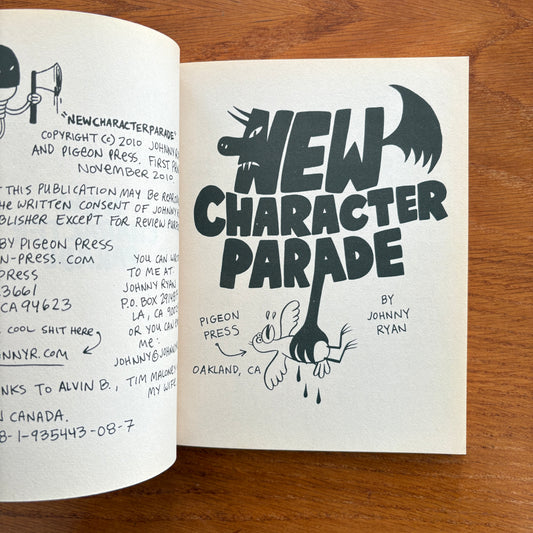 "NEWCHARACTERPARADE"
COPYRIGHT (C) 2010 JOHNNY
AND PIGEON PRESS. FIRST
NOVEMBER 2010
THIS PUBLICATION MAY BE
WRITTEN CONSENT OF JOHNNY
EXCEPT FOR REVIEW
BY PIGEON PRESS
N-PRESS.COM
PRESS
3661
CA 94623
COOL SHIT HERE
ONNYR.COM
YOU CAN
TO ME AT:
JOHNNY RYAN
P.O. BOX
LA, CA
OR YOU CAN
ME:
JOHNNY@JOHNNY
TO ALVIN B.,
TIM MALONEY
MY WIFE
CANADA.
8-1-935443-08-7
NEW
CHARACTER
PARADE
BY
JOHNNY
RYAN
PIGEON
PRESS
OAKLAND, CA